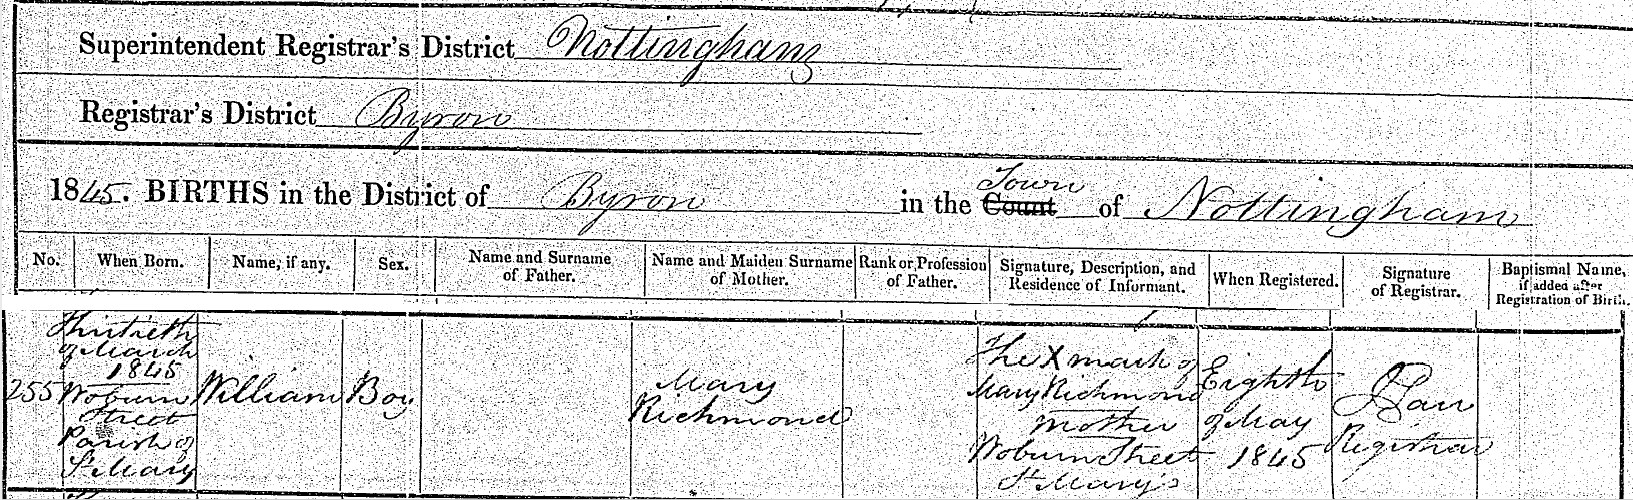 Superintendent Registrar's District Nottingham
Registrar's District Byron
1845. BIRTHS in the District of Byron in the Count Town of Nottingham
No.
When Born.
Name, if any.
Sex.
Name and Surname
of Father.
Name and Maiden Surname
of Mother.
Rank or Profession
of Father.
Signature, Description, and
Residence of Informant.
When Registered.
Signature
of Registrar.
Baptismal Name,
if added after
Registration of Birth.
255
Thirtieth
of March
1845
Woburn
Street
Parish of
St Mary
William
Boy
Mary
Richmond
The X mark of
Mary Richmond
Mother
Woburn Street
St Mary's
Eighth
of May
1845
Registrar